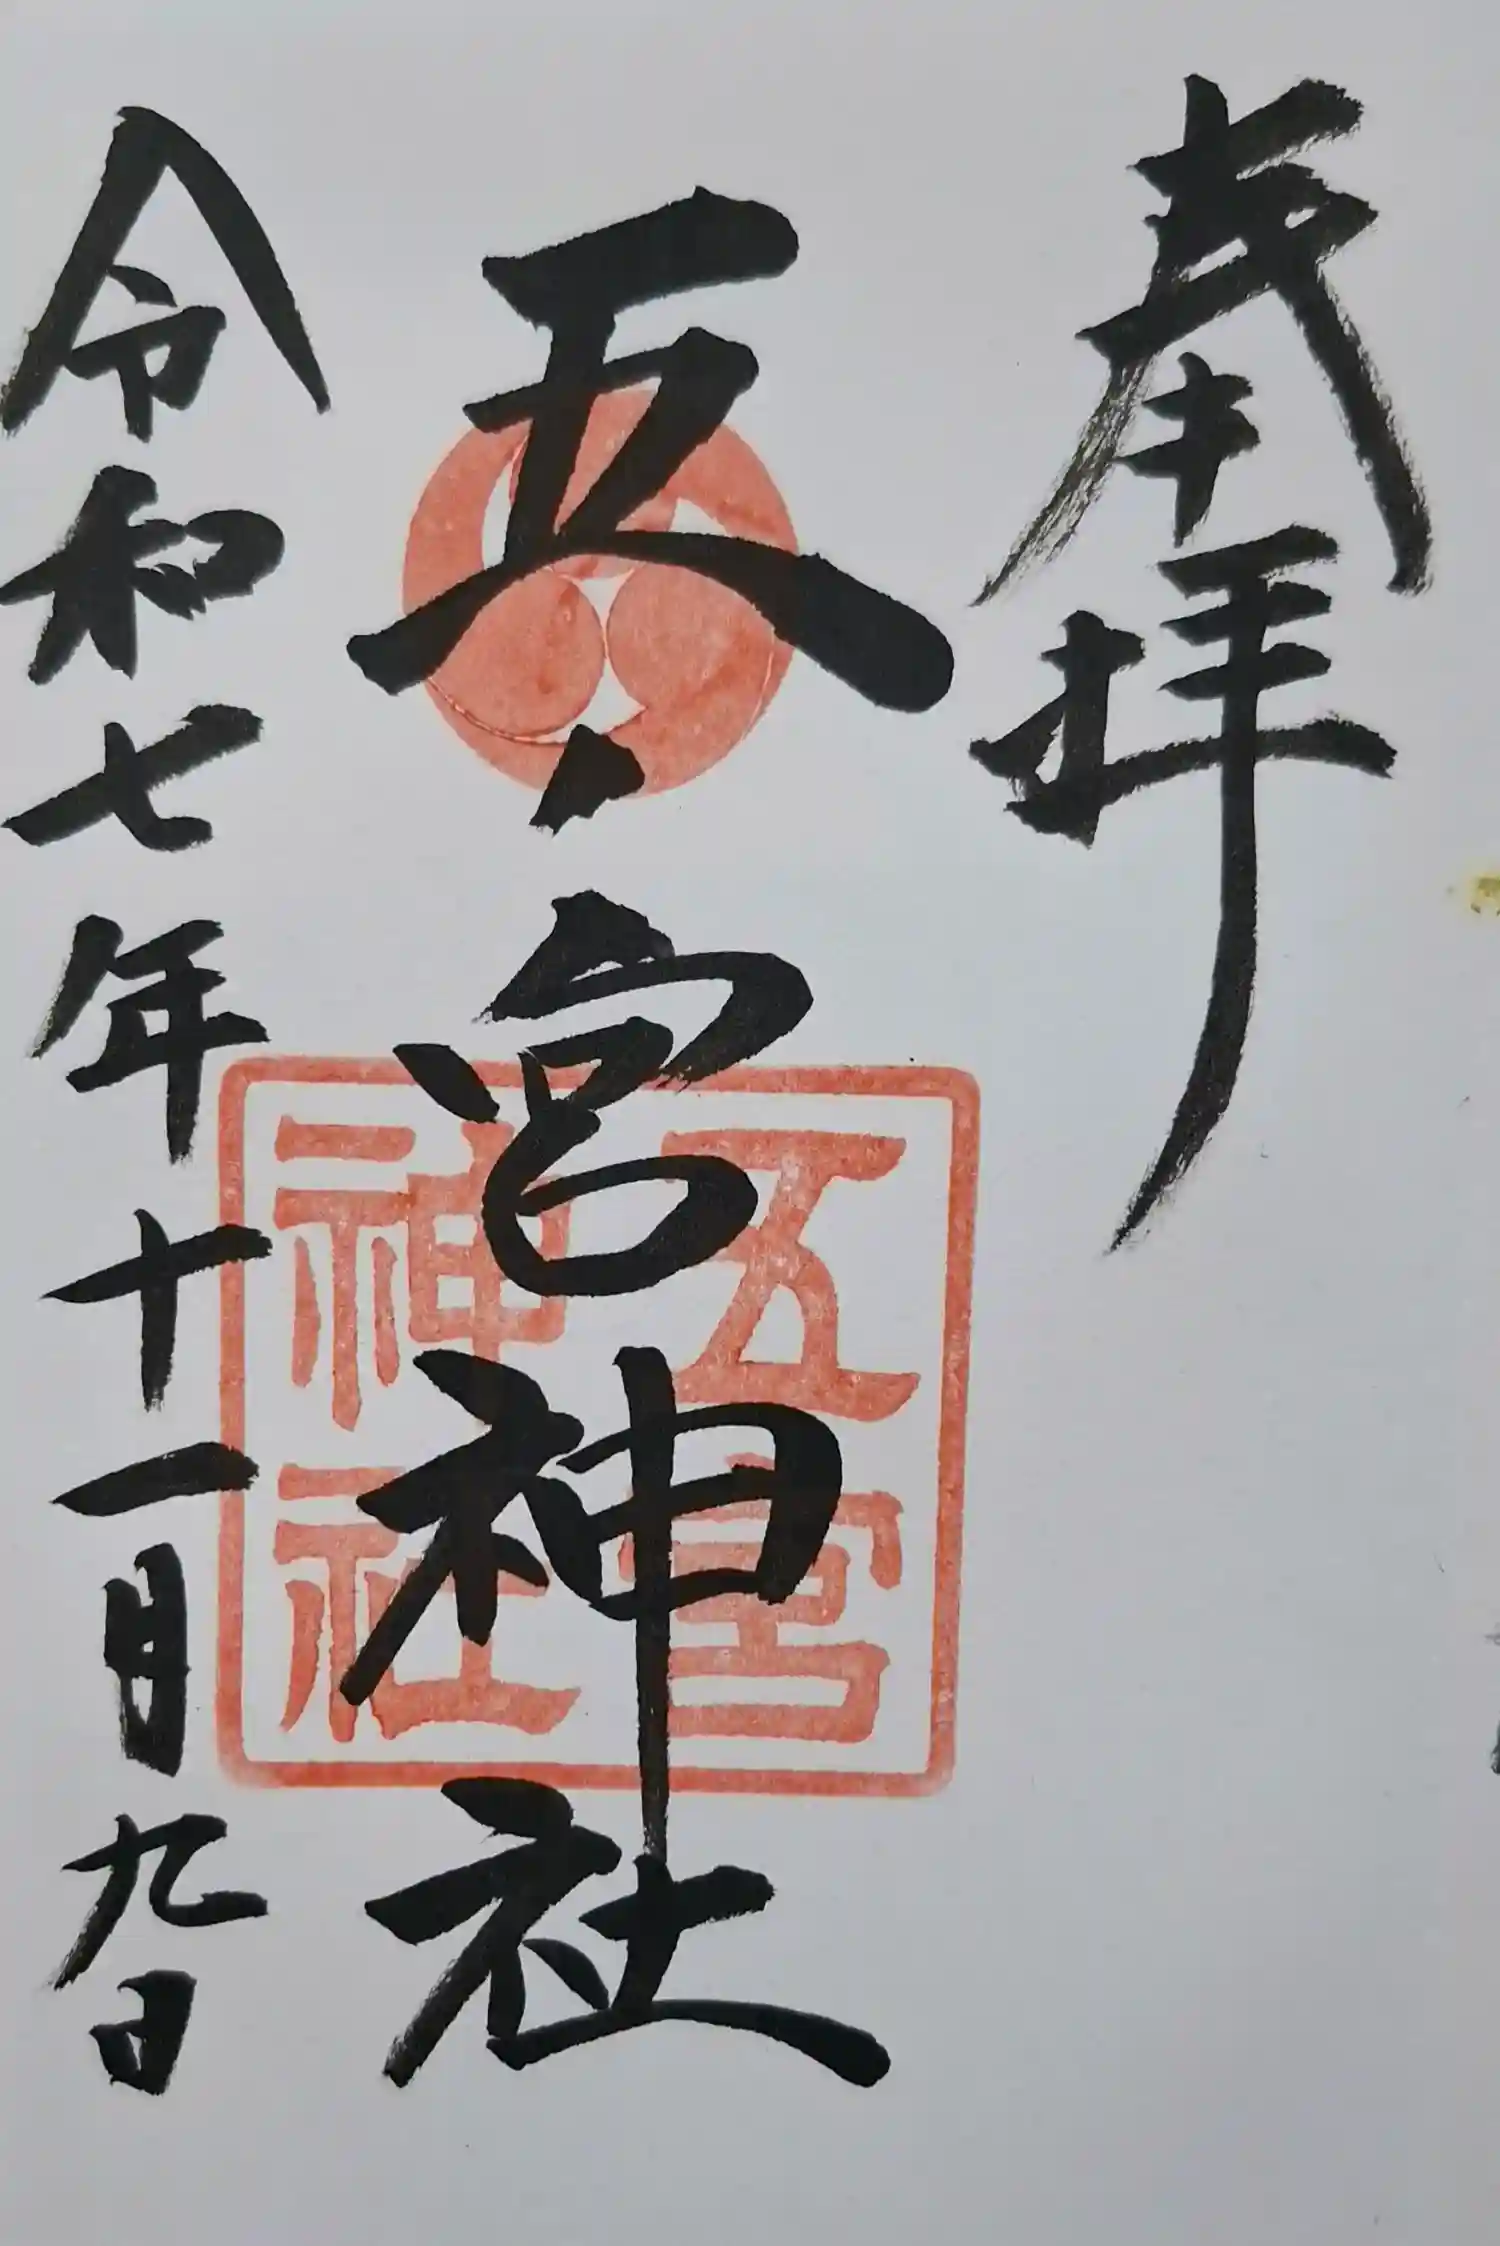 奉拝
五ノ宮神社
五宮
神社
令和七年十一月九日